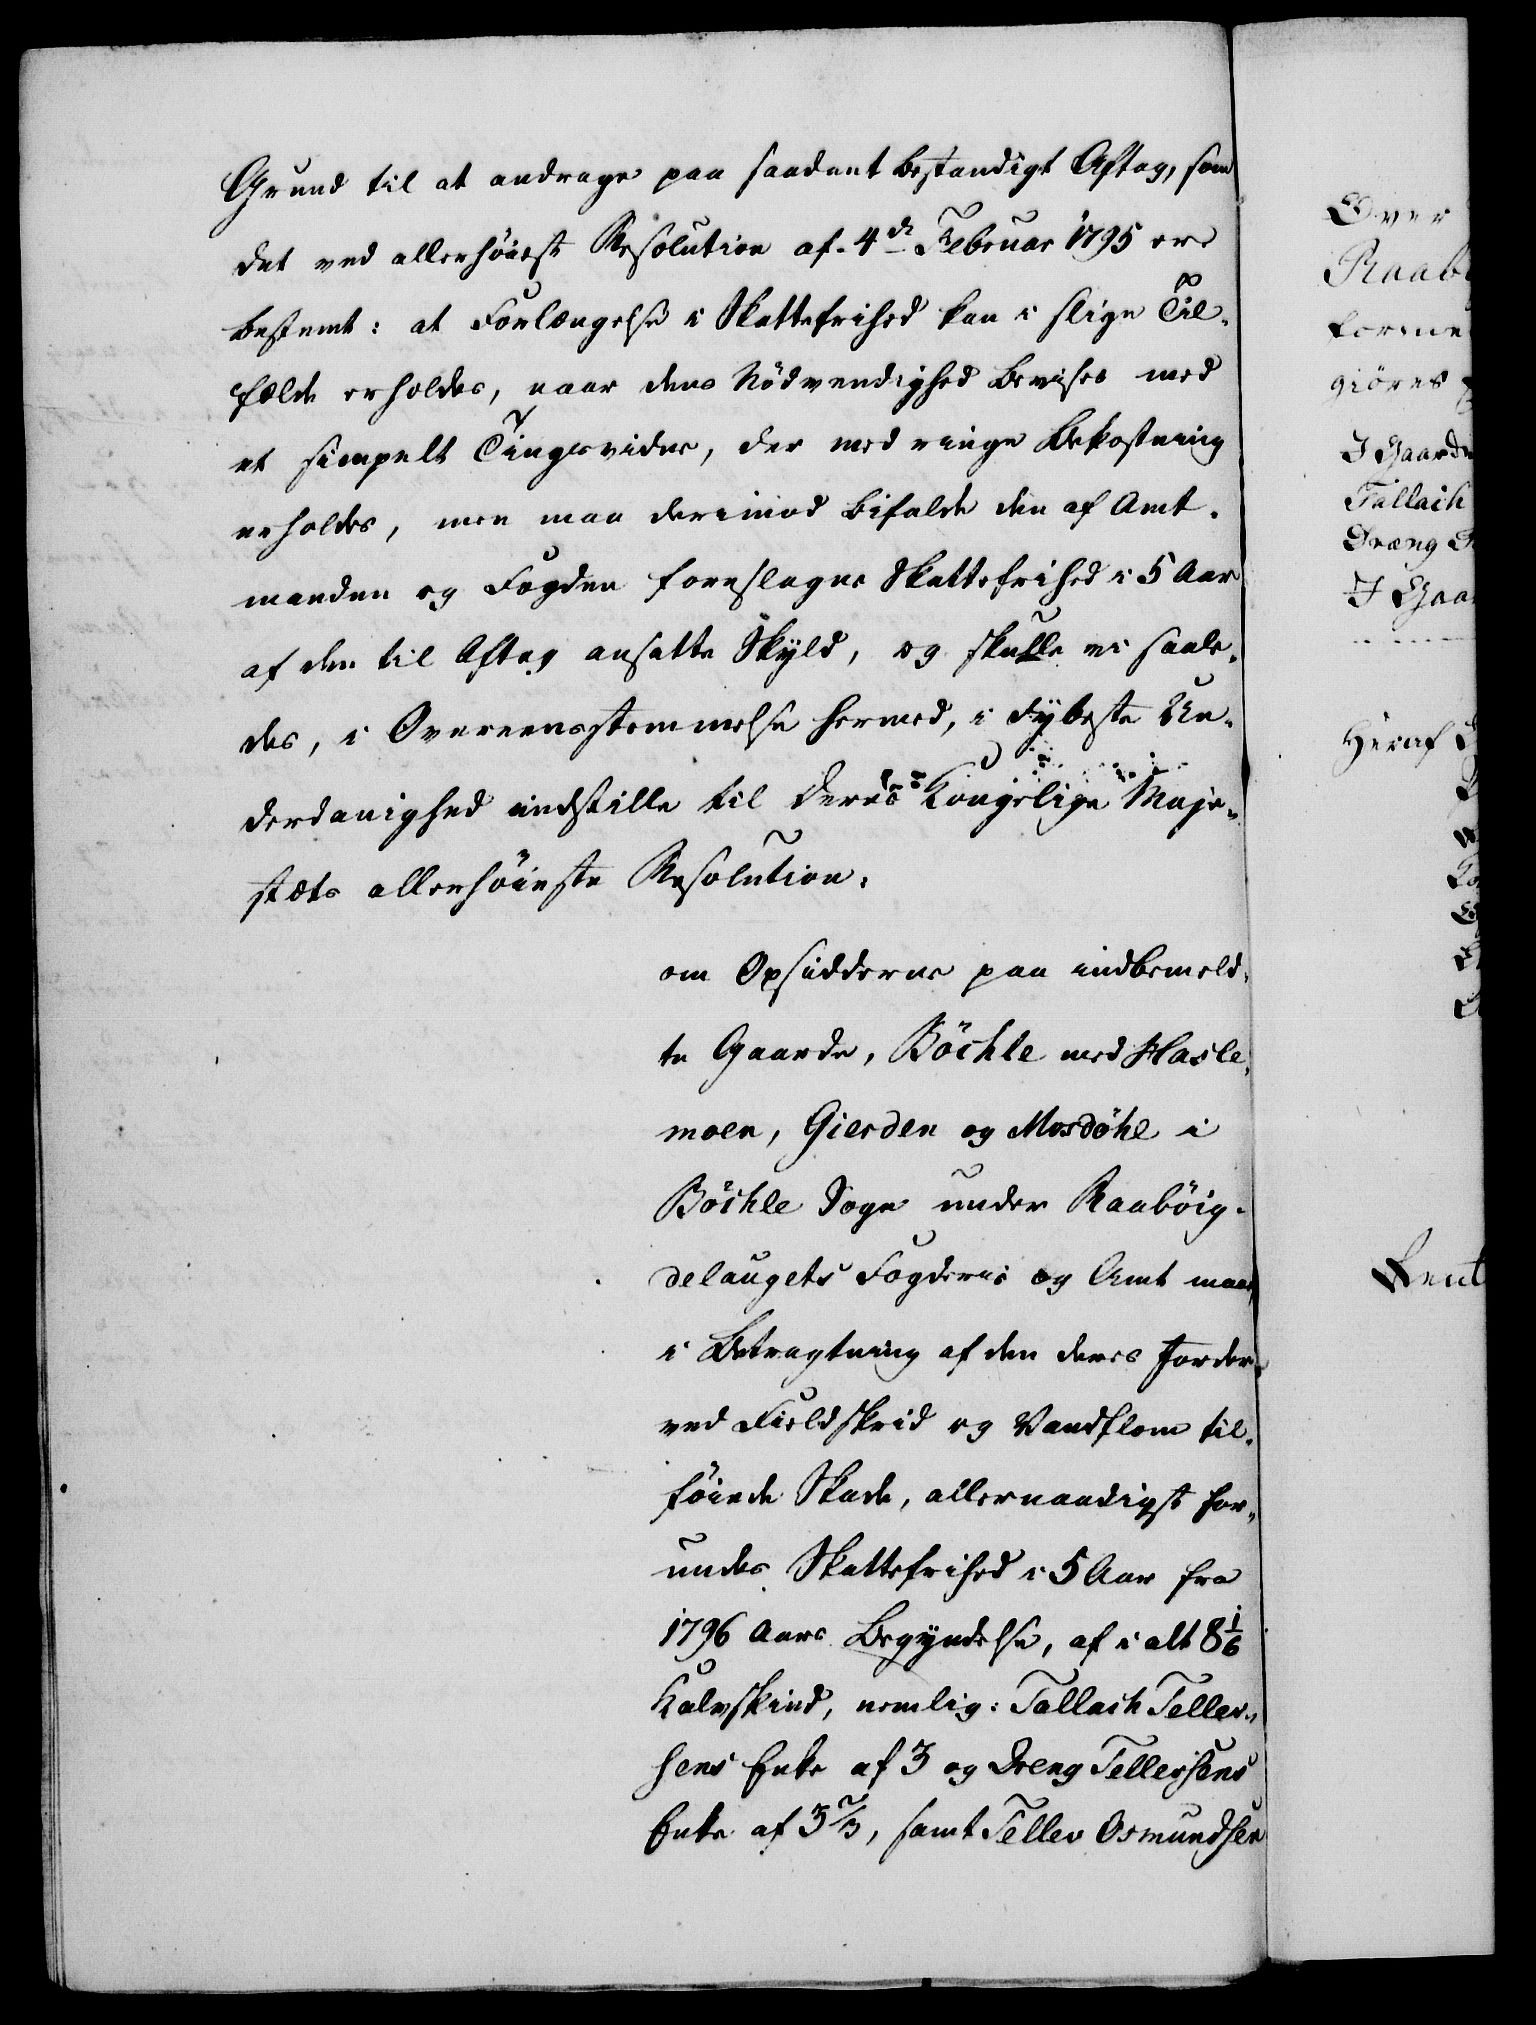 Grund til at andrage paa saadant bestandigt Aftag, som
det ved allerhöieste Resolution af 4de Februar 1795 er
bestemt: at Forlængelse i Skattefrihed kan i slige Til-
fælde erholdes, naar dens Nödvendighed bevises med
et simpelt Tingsvidne, der med ringe Bekostning
erholdes, men maa derimod bifalde den af Amt-
manden og Fogden foreslagne Skattefrihed i 5 Aar
af den til Aftag ansatte Skyld, og skulle vi saale-
des, i Overeensstemmelse hermed, i dybeste Un-
derdanighed indstille til Deres Kongelige Maje-
stæts allerhöieste Resolution:
om Opsidderne paa indbemeld-
te Gaarde, Böchle med Hasle-
moen, Gierden og Mosdøhl i
Böchle Sogn under Raaböig-
delaugets Fogderie og Amt maae
i Betragtning af den deres Jorder
ved Fieldskrid og Vandflom til-
föiede Skade, allernaadigst for-
undes Skattefrihed i 5 Aar fra
1796 Aars Begyndelse, af i alt 8 1/6
Kalvskind, nemlig: Tallach Teller-
sens Enke af 3 og Dreng Tellersens
Enke af 3 2/3, samt Tellev Osmundsen
Over
Raab
komme
giöres
I Gaard
Tallach
Dreng
I Gaa
Heraf
Rent